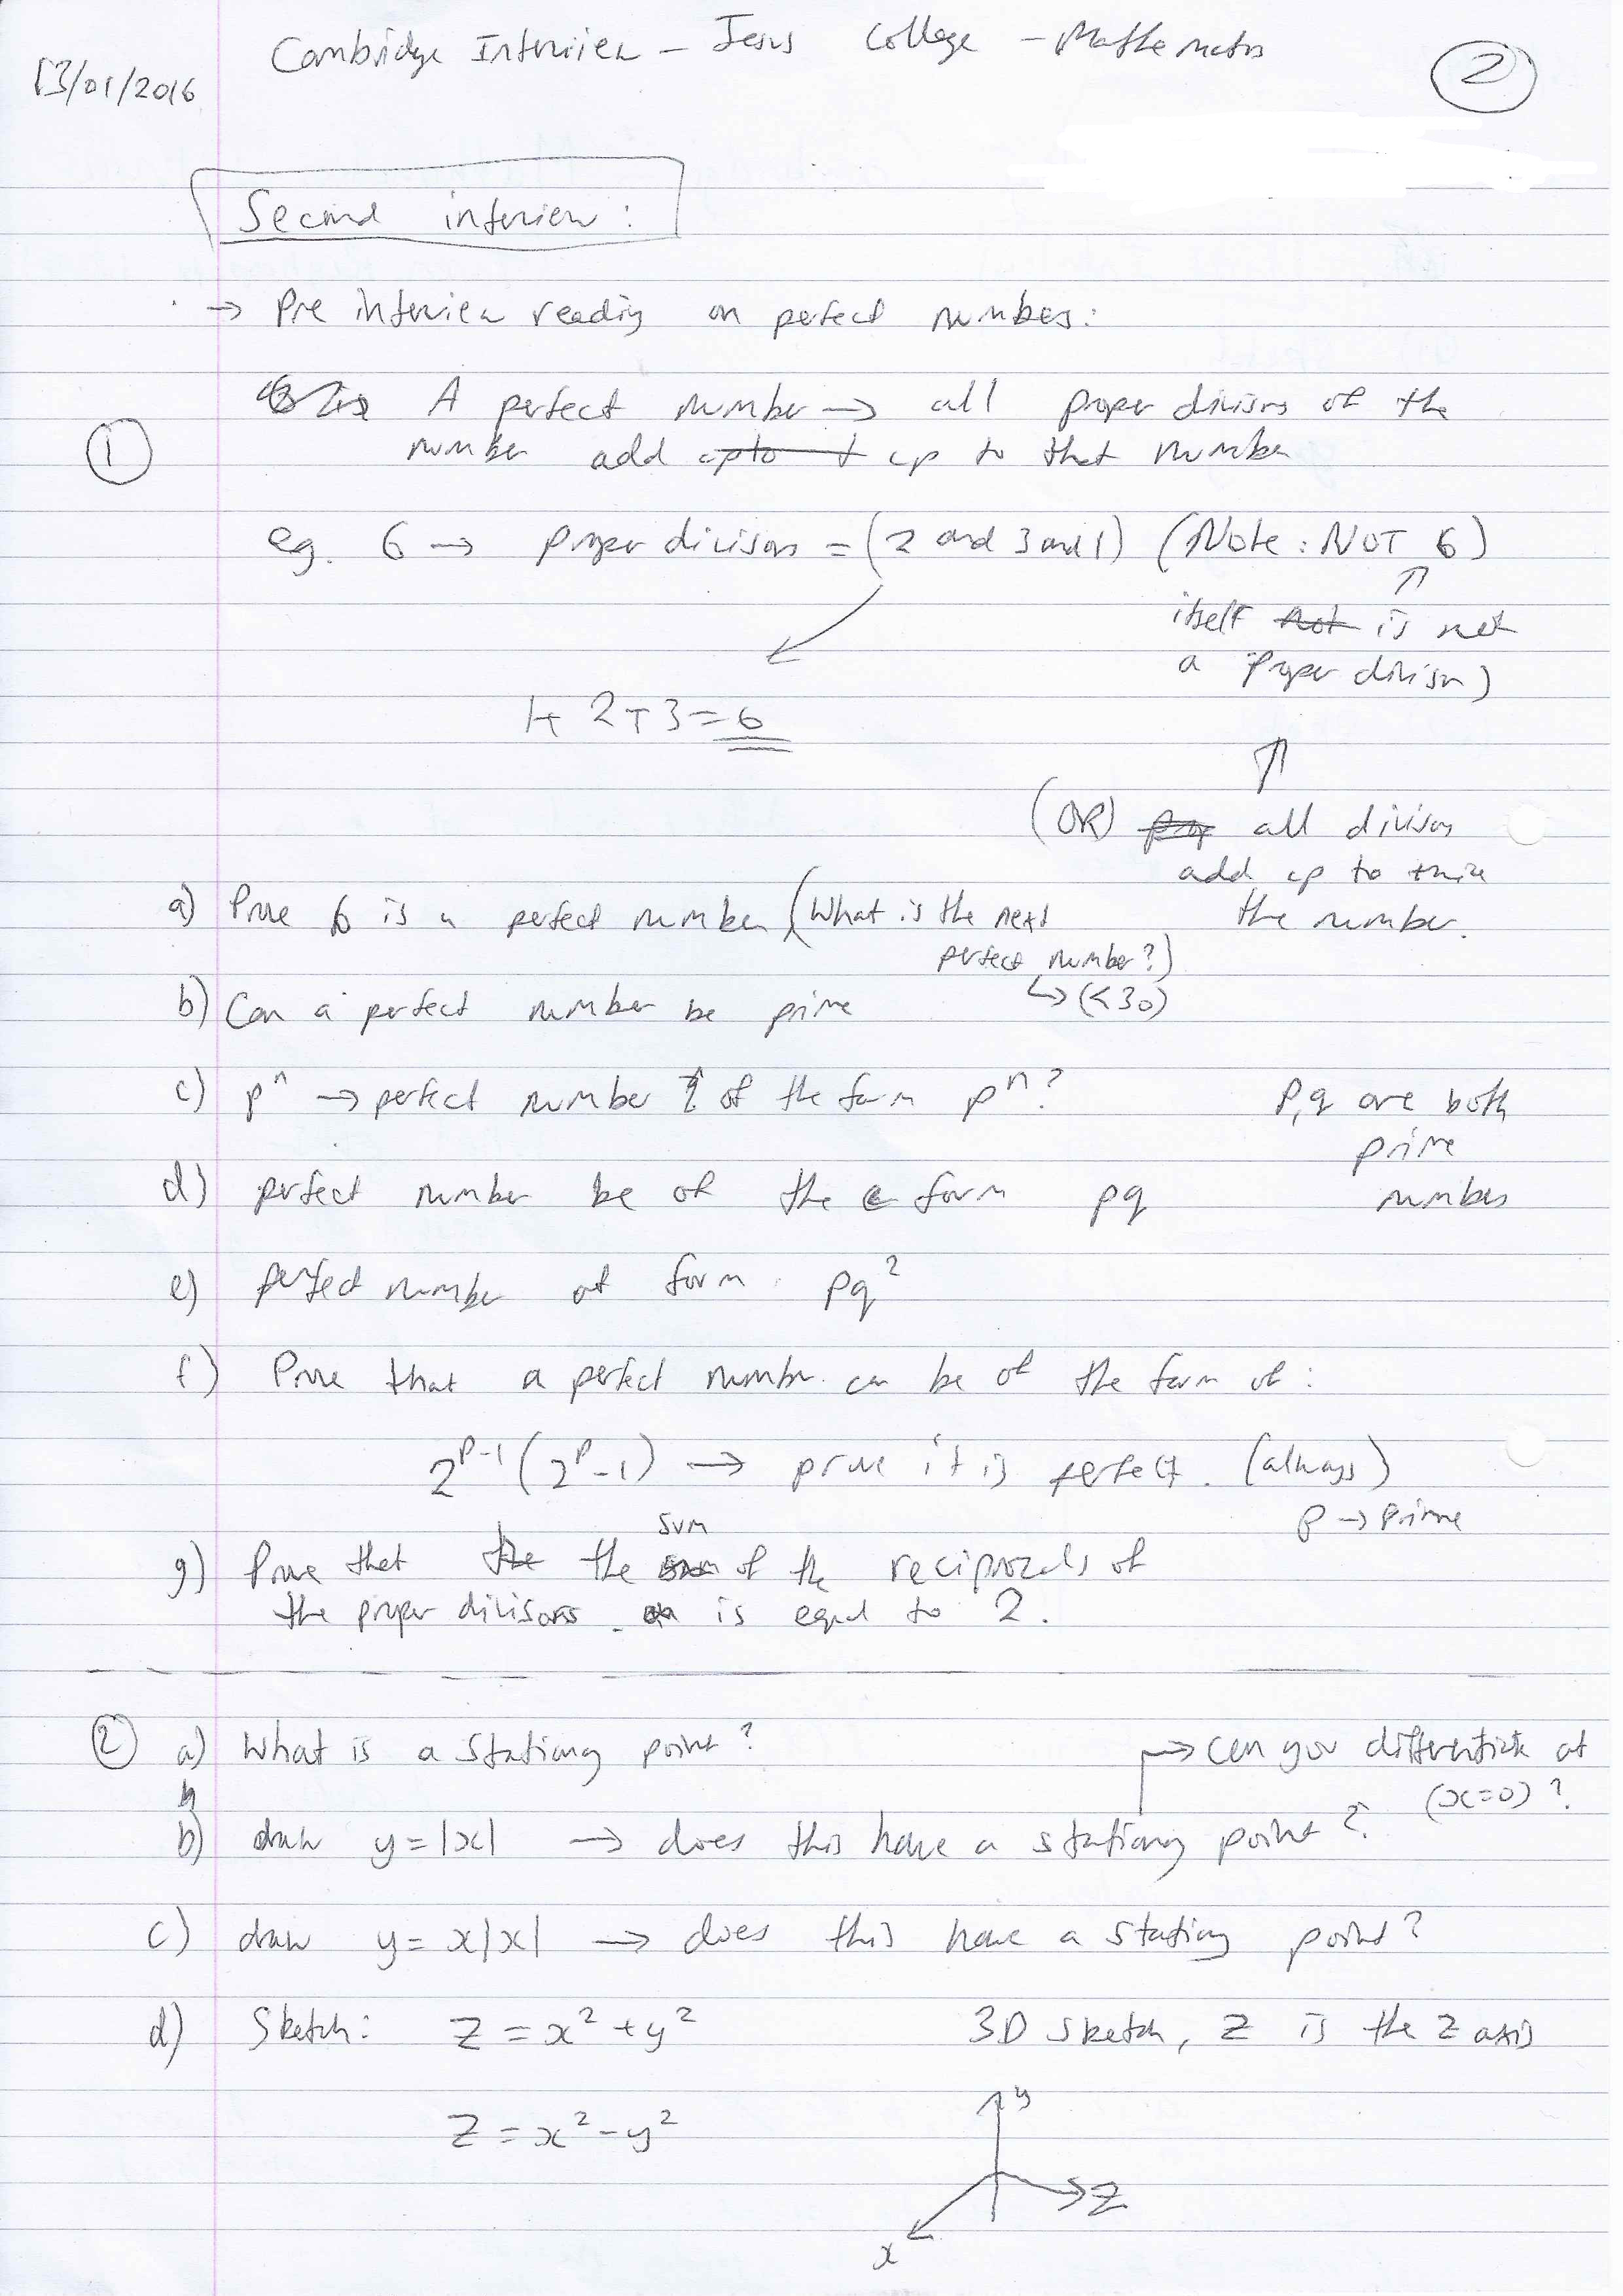 Cambridge Interview - Jesus College - Mathematics
13/01/2016
2
Second interview:
→ Pre interview reading on perfect numbers:
1
A perfect number → all proper divisors of the
number add up to that number
eg. 6 → proper divisors = (2 and 3 and 1) (Note: NOT 6)
itself is not
a proper divisor)
1+2+3=6
(OR) all divisors
add up to twice
the number.
a) Prove 6 is a perfect number (What is the next
perfect number?)
↳ (<30)
b) Can a perfect number be prime
c) pⁿ → perfect number of the form pⁿ?
p,q are both
prime
numbers
d) perfect number be of the form pq
e) perfect number of form pq²
f) Prove that a perfect number can be of the form of:
2^(p-1)(2^p-1) → prove it is perfect. (always)
p → prime
g) Prove that the sum of the reciprocals of
the proper divisors is equal to 2.
2 a) What is a stationary point?
→ can you differentiate at
(x=0)?
b) draw y=|x| → does this have a stationary point?
c) draw y=x|x| → does this have a stationary point?
d) Sketch: z=x²+y² 3D sketch, z is the z axis
z=x²-y²
y
z
x